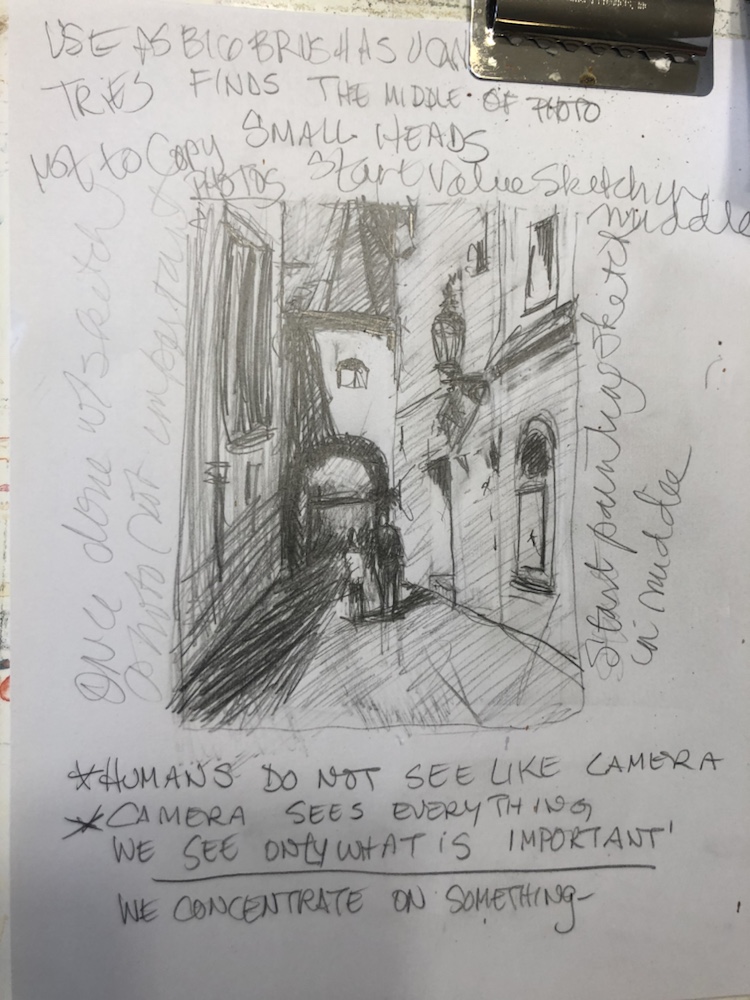 USE AS BIG BRUSH AS U CAN
TRIES FINDS THE MIDDLE OF PHOTO
SMALL HEADS
NOT to Copy
PHOTO'S
Start Value Sketch in
middle
Once done w/ sketch
photo not important
Start painting sketch
in middle
*HUMANS DO NOT SEE LIKE CAMERA
*CAMERA SEES EVERYTHING
WE SEE ONLY WHAT IS IMPORTANT'
WE CONCENTRATE ON SOMETHING-